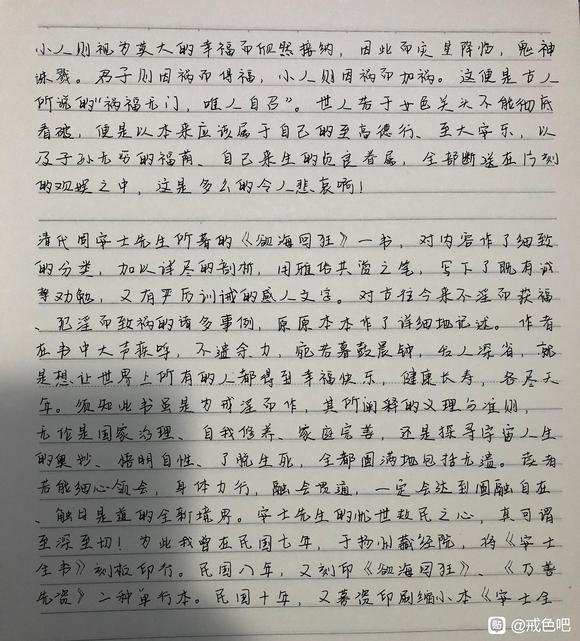 小人则视为莫大的幸福而怛然接纳，因此而灾星降临，鬼神
诛戮。君子则因祸而得福，小人则因祸而加祸。这便是古人
所说的“祸福无门，唯人自召”。世人若于女色关头不能彻底
看破，便是以本来应该属于自己的至高德行、至大安乐，以
及子孙无穷的福荫、自己来生的贞良眷属，全部断送在片刻
的欢娱之中，这是多么的令人悲哀啊！
清代周安士先生所著的《欲海回狂》一书，对内容作了细致
的分类，加以详尽的剖析，用雅俗共赏之笔，写下了既有诚
挚劝勉，又有严厉训诫的感人文字。对古往今来不淫而获福
、犯淫而致祸的诸多事例，原原本本作了详细地记述。作者
在书中大声疾呼，不遗余力，宛若暮鼓晨钟，令人深省，就
是想让世界上所有的人都得到幸福快乐，健康长寿，各尽天
年。须知此书虽是为戒淫而作，其所阐释的义理与准则，
无论是国家治理、自我修养、家庭完善，还是探寻宇宙人生
的奥妙、悟明自性、了脱生死，全都圆满地包括无遗。读者
若能细心领会，身体力行，融会贯通，一定会达到圆融自在
、触目是道的全新境界。安士先生的忧世救民之心，真可谓
至深至切！为此我曾在民国七年，于扬州藏经院，将《安士
全书》刻板印行。民国八年，又刻印《欲海回狂》、《万善
先资》二种单行本。民国十年，又募资印刷缩小本《安士全
贴 @戒色吧